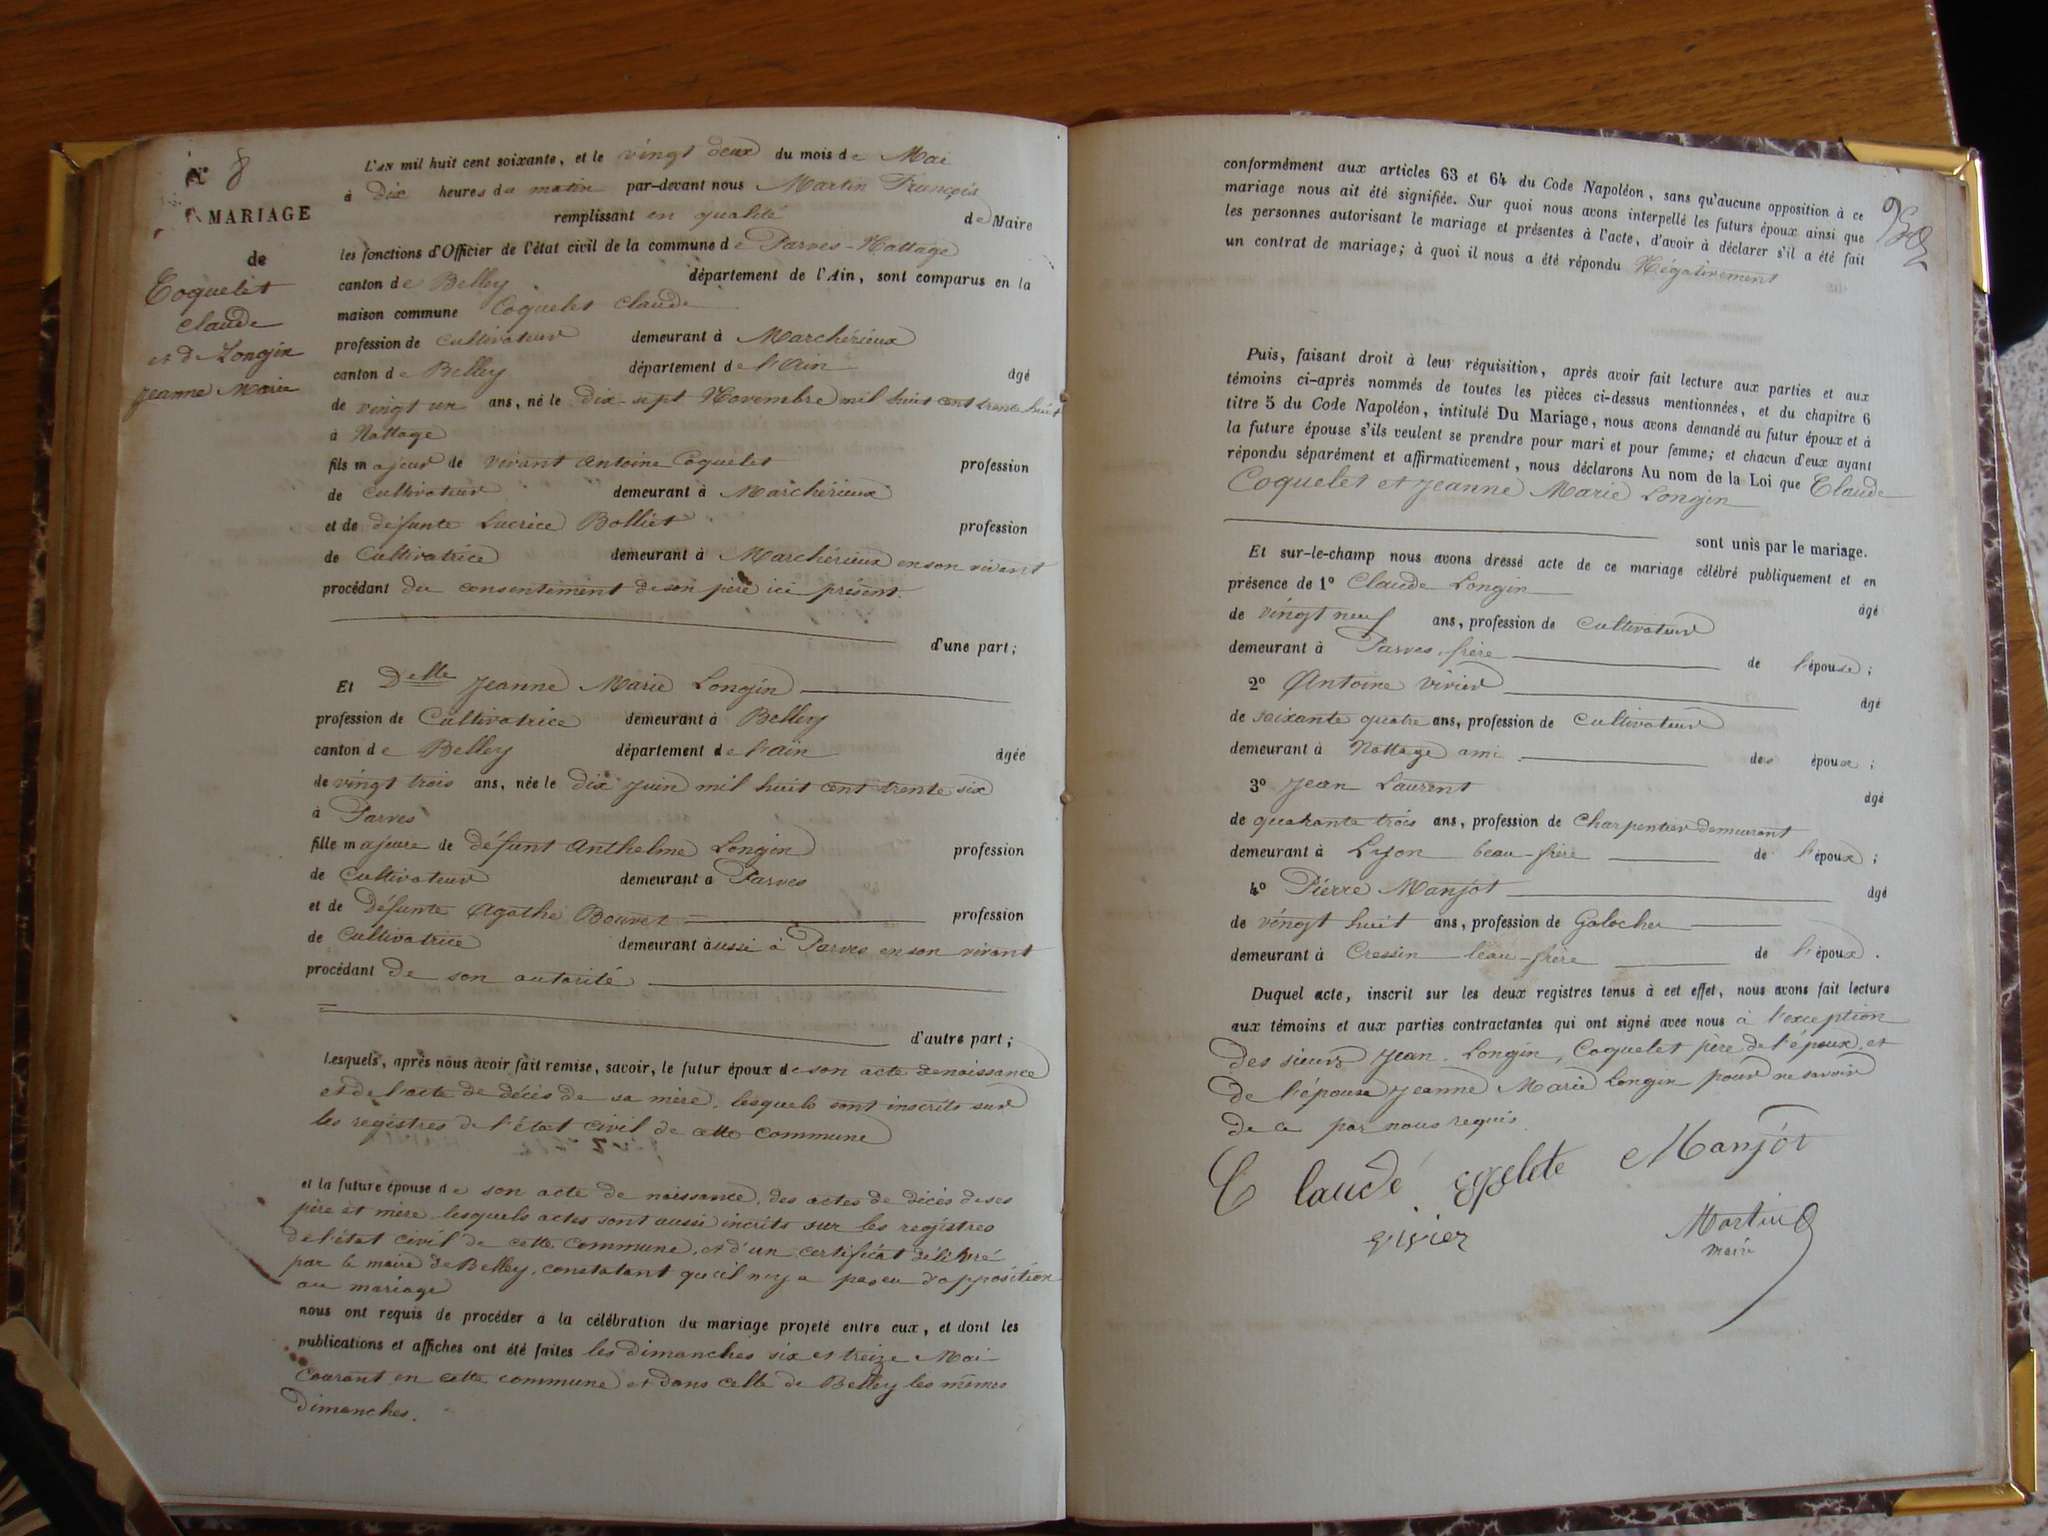 N° 8
MARIAGE
de
Coquelet
Claude
et de Longin
Jeanne Marie
L'AN mil huit cent soixante, et le vingt deux du mois de Mai
à Dix heures du matin par-devant nous Martin François
remplissant en qualité de Maire
les fonctions d'Officier de l'état civil de la commune de Parves-Nattage
canton de Belley département de l'Ain, sont comparus en la
maison commune Coquelet Claude
profession de Cultivateur demeurant à Marchérieux
canton de Belley département de l'Ain âgé
de vingt un ans, né le Dix-sept Novembre mil huit cent trente huit
à Nattage
fils majeur de vivant Antoine Coquelet profession
de Cultivateur demeurant à Marchérieux
et de défunte Lucrice Bolliet profession
de Cultivatrice demeurant à Marchérieux en son vivant
procédant du consentiment de son père ici présent.
d'une part;
Et Delle Jeanne Marie Longin
profession de Cultivatrice demeurant à Belley
canton de Belley département de l'Ain âgée
de vingt trois ans, née le Dix Juin mil huit cent trente six
à Parves
fille majeure de défunt Anthelme Longin profession
de Cultivateur demeurant à Parves
et de Défunte Agathe Bouvet profession
de Cultivatrice demeurant aussi à Parves en son vivant
procédant de son autorité
d'autre part;
Lesquels, après nous avoir fait remise, savoir, le futur époux de son acte de naissance
et de l'acte de décès de sa mère, lesquels sont inscrits sur
les régistres de l'état civil de cette commune
et la future épouse de son acte de naissance, des actes de décès de ses
père et mère lesquels actes sont aussi incrits sur les registres
de l'état civil de cette commune, et d'un certificat délivré
par le maire de Belley, constatant qu'il n'y a pas eu d'opposition
au mariage
nous ont requis de procéder à la célébration du mariage projeté entre eux, et dont les
publications et affiches ont été faites les dimanches six et treize Mai
Courant en cette commune et dans celle de Belley les mêmes
dimanches.
conformément aux articles 63 et 64 du Code Napoléon, sans qu'aucune opposition à ce
mariage nous ait été signifiée. Sur quoi nous avons interpellé les futurs époux ainsi que
les personnes autorisant le mariage et présentes à l'acte, d'avoir à déclarer s'il a été fait
un contrat de mariage; à quoi il nous a été répondu Négativement
Puis, faisant droit à leur réquisition, après avoir fait lecture aux parties et aux
témoins ci-après nommés de toutes les pièces ci-dessus mentionnées, et du chapitre 6
titre 5 du Code Napoléon, intitulé Du Mariage, nous avons demandé au futur époux et à
la future épouse s'ils veulent se prendre pour mari et pour femme; et chacun d'eux ayant
répondu séparément et affirmativement, nous déclarons Au nom de la Loi que Claude
Coquelet et Jeanne Marie Longin
sont unis par le mariage.
Et sur-le-champ nous avons dressé acte de ce mariage célébré publiquement et en
présence de 1° Claude Longin âgé
de vingt neuf ans, profession de Cultivateur
demeurant à Parves frère de l'épouse;
2° Antoine Vivier âgé
de soixante quatre ans, profession de Cultivateur
demeurant à Nattage ami des époux;
3° Jean Laurent âgé
de quarante trois ans, profession de Charpentier demeurant
demeurant à Lyon beau-frère de l'époux;
4° Piérre Manjot âgé
de vingt huit ans, profession de Galocher
demeurant à Cressin beau-frère de l'époux.
Duquel acte, inscrit sur les deux registres tenus à cet effet, nous avons fait lecture
aux témoins et aux parties contractantes qui ont signé avec nous à l'exception
des sieurs Jean. Longin, Coquelet père de l'époux, et
de l'épouse Jeanne Marie Longin pour ne savoir
de ce par nous requis.
Claude Manjot
vivier Martin
maire